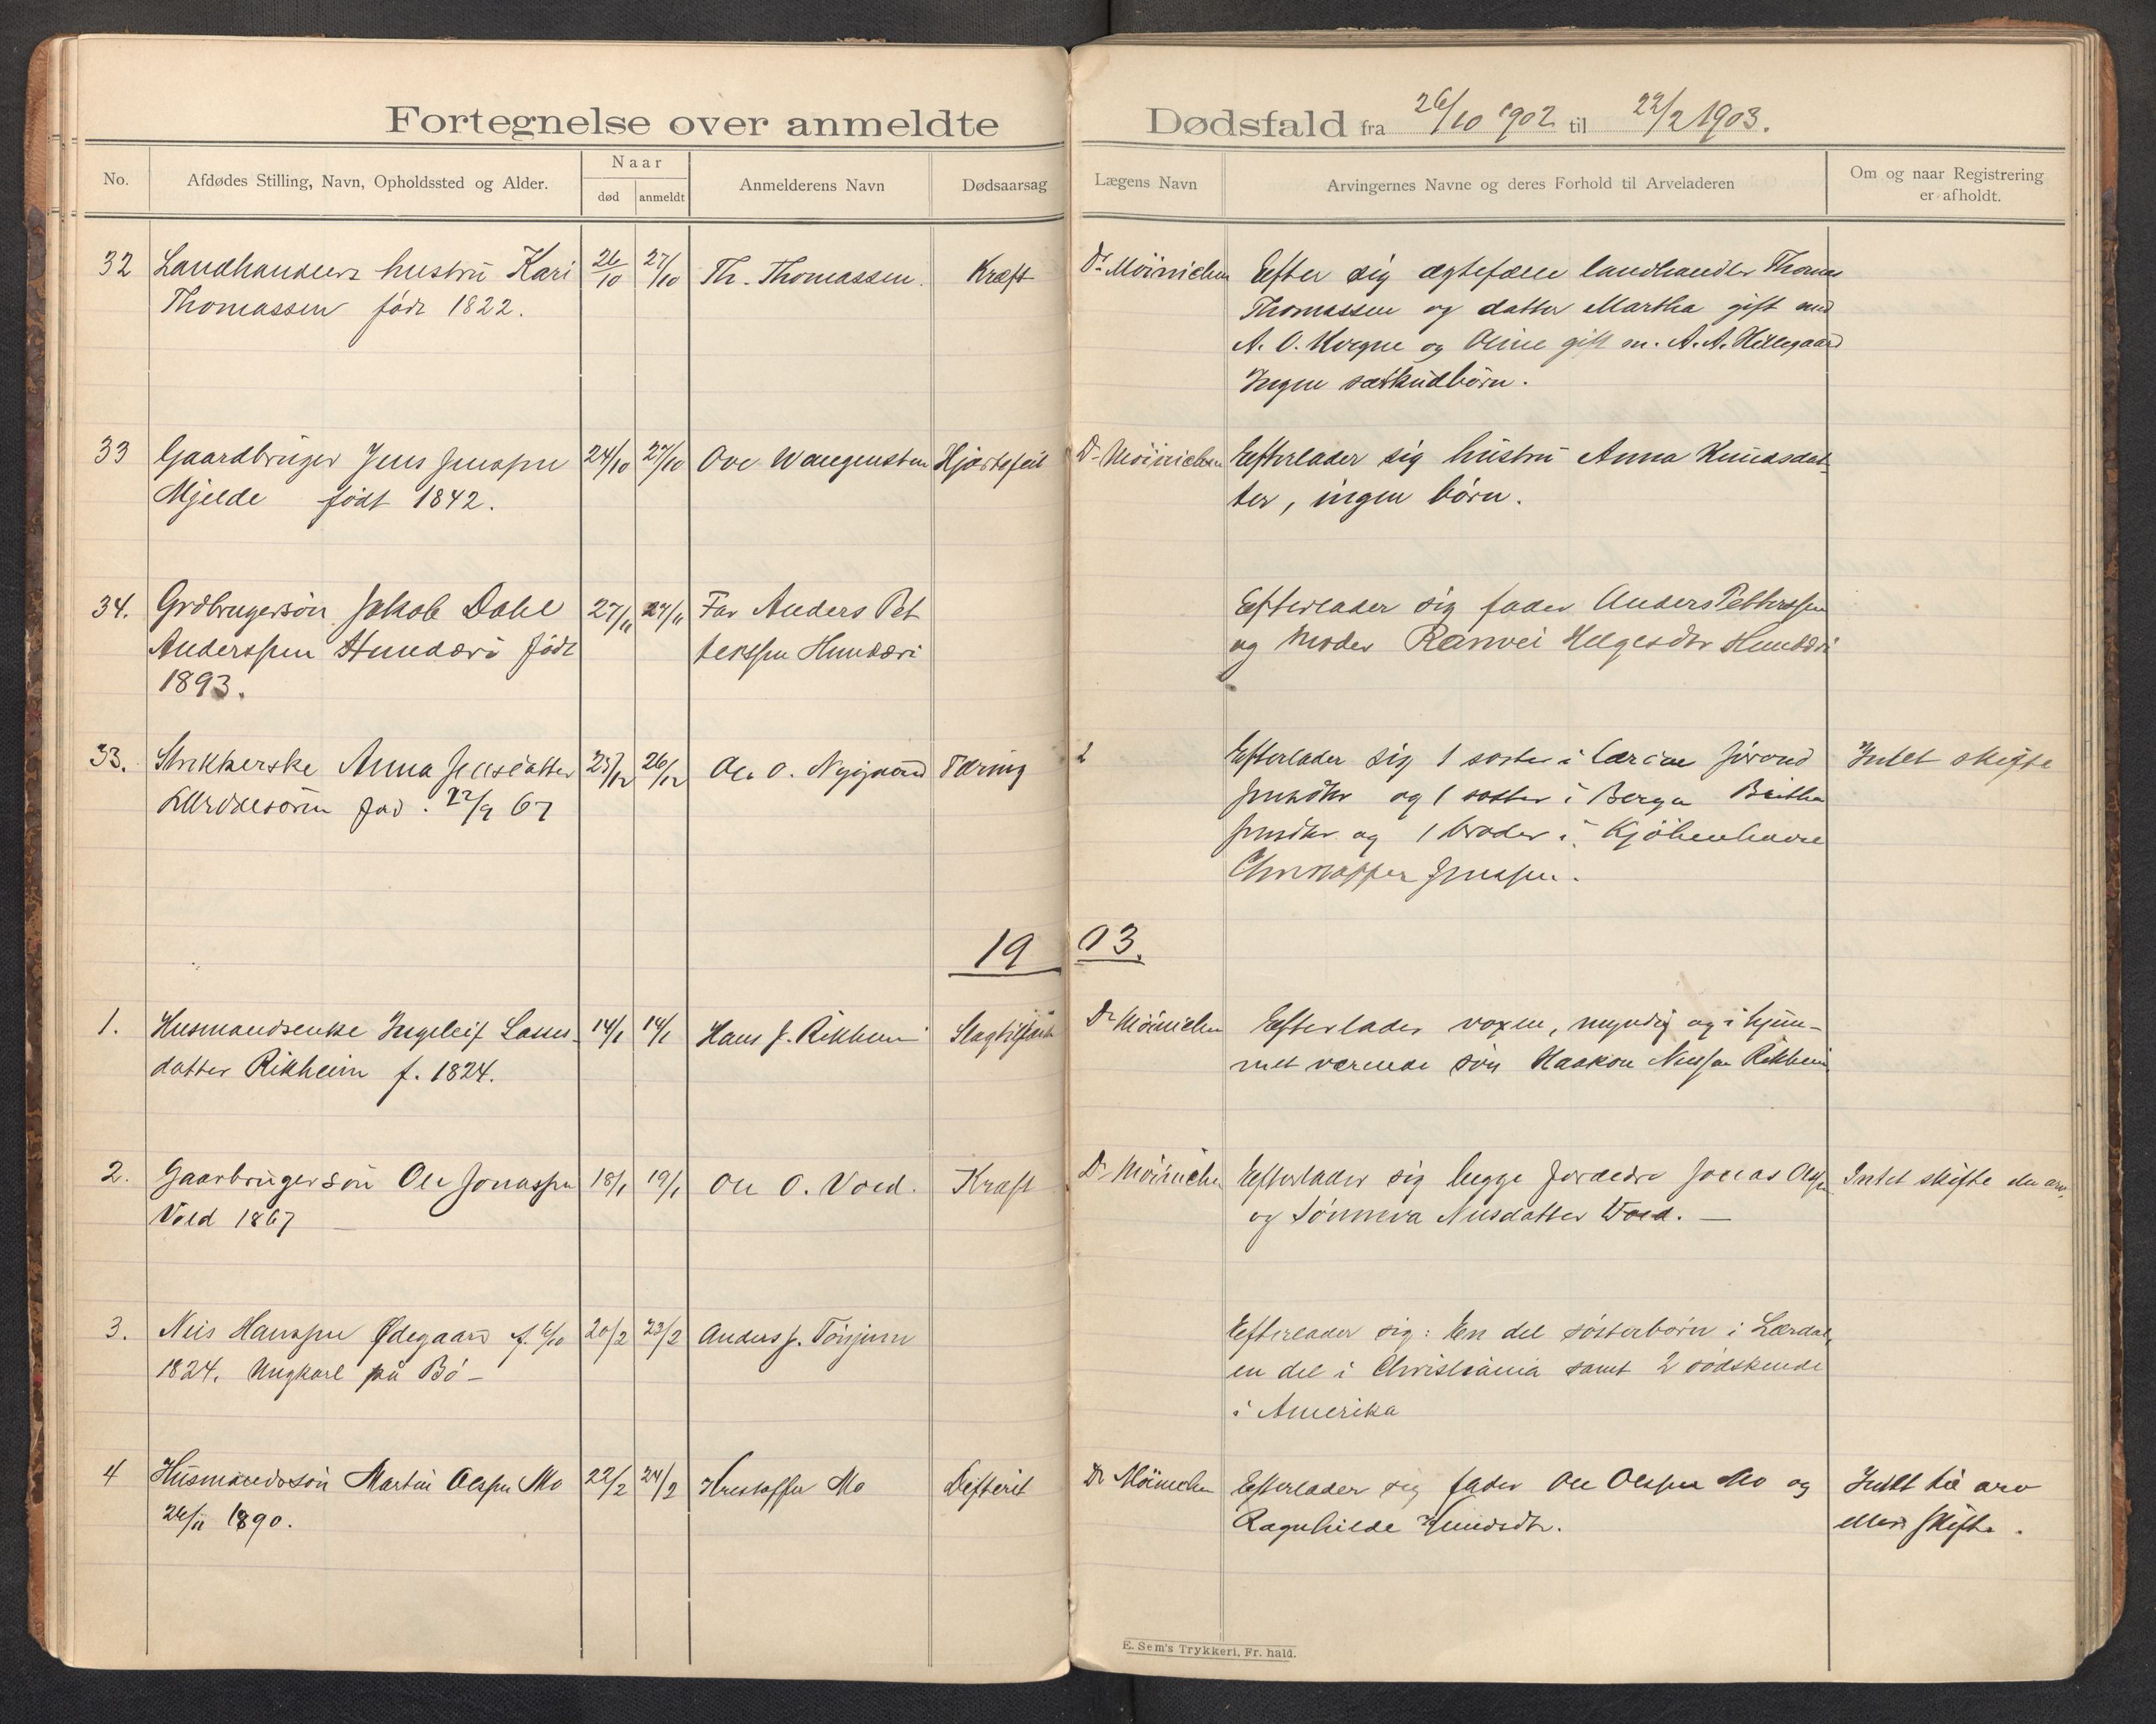 Fortegnelse over anmeldte Dødsfald fra 26/10 1902 til 22/2 1903.
No.
Afdødes Stilling, Navn, Opholdssted og Alder.
Naar
død
anmeldt
Anmelderens Navn
Dødsaarsag
Lægens Navn
Arvingernes Navne og deres Forhold til Arveladeren
Om og naar Registrering
er afholdt.
32 Landhandlers hustru Kari 26/10 27/10 Th. Thomassen. Kræft Dr Möinichen Efter sig ægtefælle landhandler Thomas
Thomassen født 1822. Thomassen og datter Martha gift med
A. O. Kvigne og Oline gift m. A. A. Hillegaard
Ingen særkudbörn.
33 Gaardbruger Jens Jenspen 24/10 27/10 Ove Wangensten Hjærtefeil Dr Möinichen Efterlader sig hustru Anna Knudsdat-
Mjelde født 1842. ter, ingen börn.
34. Grdbrugersön Jakob Dahl 27/11 27/11 Far Anders Pet Efterlader sig fader Anders Petterssen
Anderssen Hunderi født terssen Hunderi og moder Ranvei Helgesdtr Hunderi
1893.
33. Strikkerske Anna Jensdatter 25/12 26/12 Ole O. Nygaard Tæring Efterlader sig 1 søster i Intet skifte
Lærdalsören fød. 22/9 67 Jensdtr og 1 søster i Bergen Britha
Jensdtr og 1 broder i Kjöbenhavn
Christoffer Jenssen.
1903.
1. Husmandsenke Ingeleif Lasses- 14/1 14/1 Hans J. Rikheim Slagtilfælde Dr Möinichen Efterlader voxen, myndig og i hjem-
datter Rikheim f. 1824. met værende sön Haakon Nilssen Rikheim
2. Gaarbrugersön Ole Jonassen 18/1 19/1 Ole O. Vold. Kræft Dr Möinichen Efterlader sig begge forældre Jonas Olsen Intet skifte ell. arv.
Vold 1867 og Sönneva Nilsdatter Wold. —
3. Nils Hanssen Ødegaard f. 6/10 20/2 23/2 Anders J. Tönjum Efterlader sig: En del søsterbörn i Lærdal,
1824. Ungkarl på Bö — en del i Christiania samt 2 södskende
i Amerika
4 Husmandssön Martin Olssen Mo 22/2 24/2 Kristoffer Mo Difterit Dr Möinichen Efterlader sig fader Ole Olssen Mo og Intet til arv
26/11 1890. Ragnhilde Knudsdtr. eller skifte.
E. Sem's Trykkeri, Fr. hald.